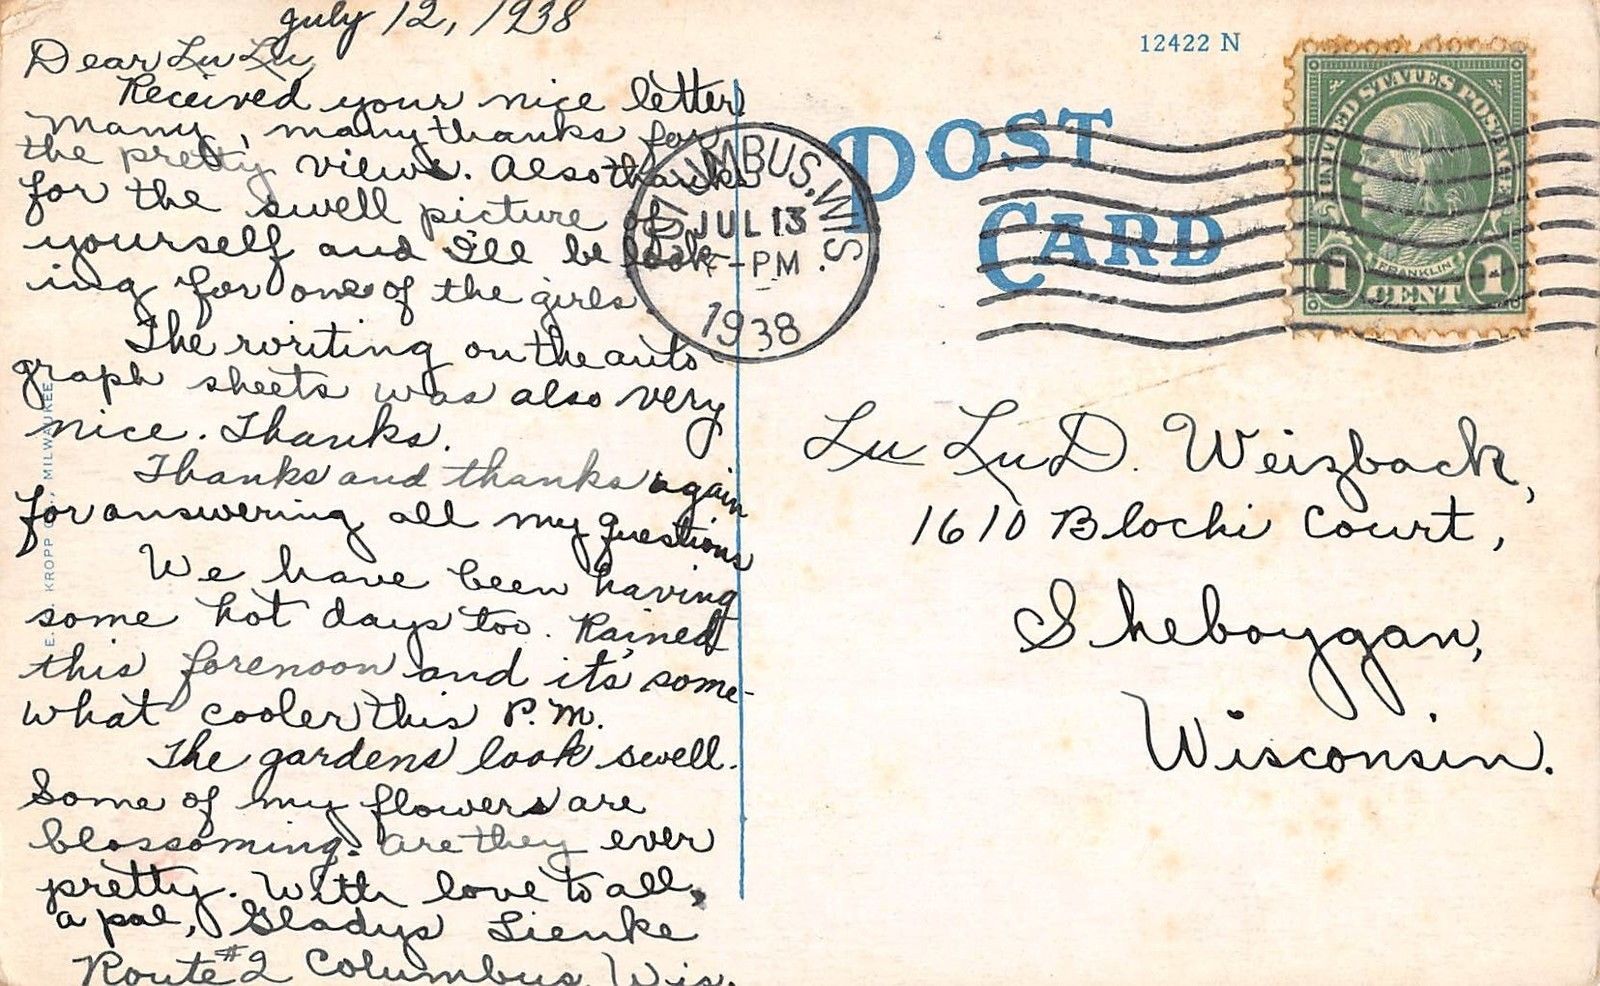 July 12, 1938
Dear Lu Lu,
Received your nice letter
many, many thanks for
the pretty views. Also thanks
for the swell picture of
yourself and I'll be look-
ing for one of the girls.
The writing on the auto
graph sheets was also very
nice. Thanks.
Thanks and thanks again
for answering all my questions
We have been having
some hot days too. Rained
this forenoon and it's some-
what cooler this P.M.
The gardens look swell.
Some of my flowers are
blossoming. Are they ever
pretty. With love to all,
a pal, Gladys Lienke
Route #2 Columbus, Wis.
E. C. KROPP CO., MILWAUKEE
12422 N
POST
CARD
COLUMBUS, WIS.
JUL 13
-PM
1938
UNITED STATES POSTAGE
FRANKLIN
1 CENT 1
Lu Lu D. Weizback,
1610 Blocki Court,
Sheboygan,
Wisconsin.